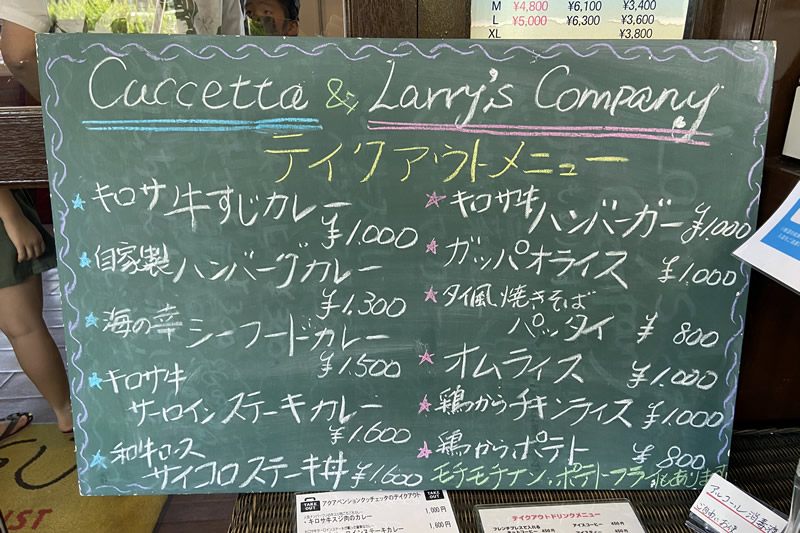 M ¥4,800 ¥6,100 ¥3,400
L ¥5,000 ¥6,300 ¥3,600
XL ¥3,800
Cuccetta & Larry's Company
テイクアウトメニュー
キロサ牛すじカレー
¥1.000
自家製ハンバーグカレー
¥1.300
海の幸シーフードカレー
¥1.500
キロサ牛
サーロインステーキカレー
¥1.600
和牛ロース
サイコロステーキ丼 ¥1.600
キロサ牛ハンバーガー ¥1000
ガッパオライス ¥1.000
タイ風焼きそば
パッタイ ¥800
オムライス ¥1.000
鶏からチキンライス ¥1.000
鶏からポテト ¥800
モチモチナン、ポテトフライもあります
TAKE OUT アクアペンションクッチェッタのテイクアウト TAKE OUT
・キロサキスジ肉のカレー 1,000円
1,600円
テイクアウトドリンクメニュー
フレンチプレスで入れる アイスコーヒー 450円
450円
アルコール消毒液
ご自由にお使